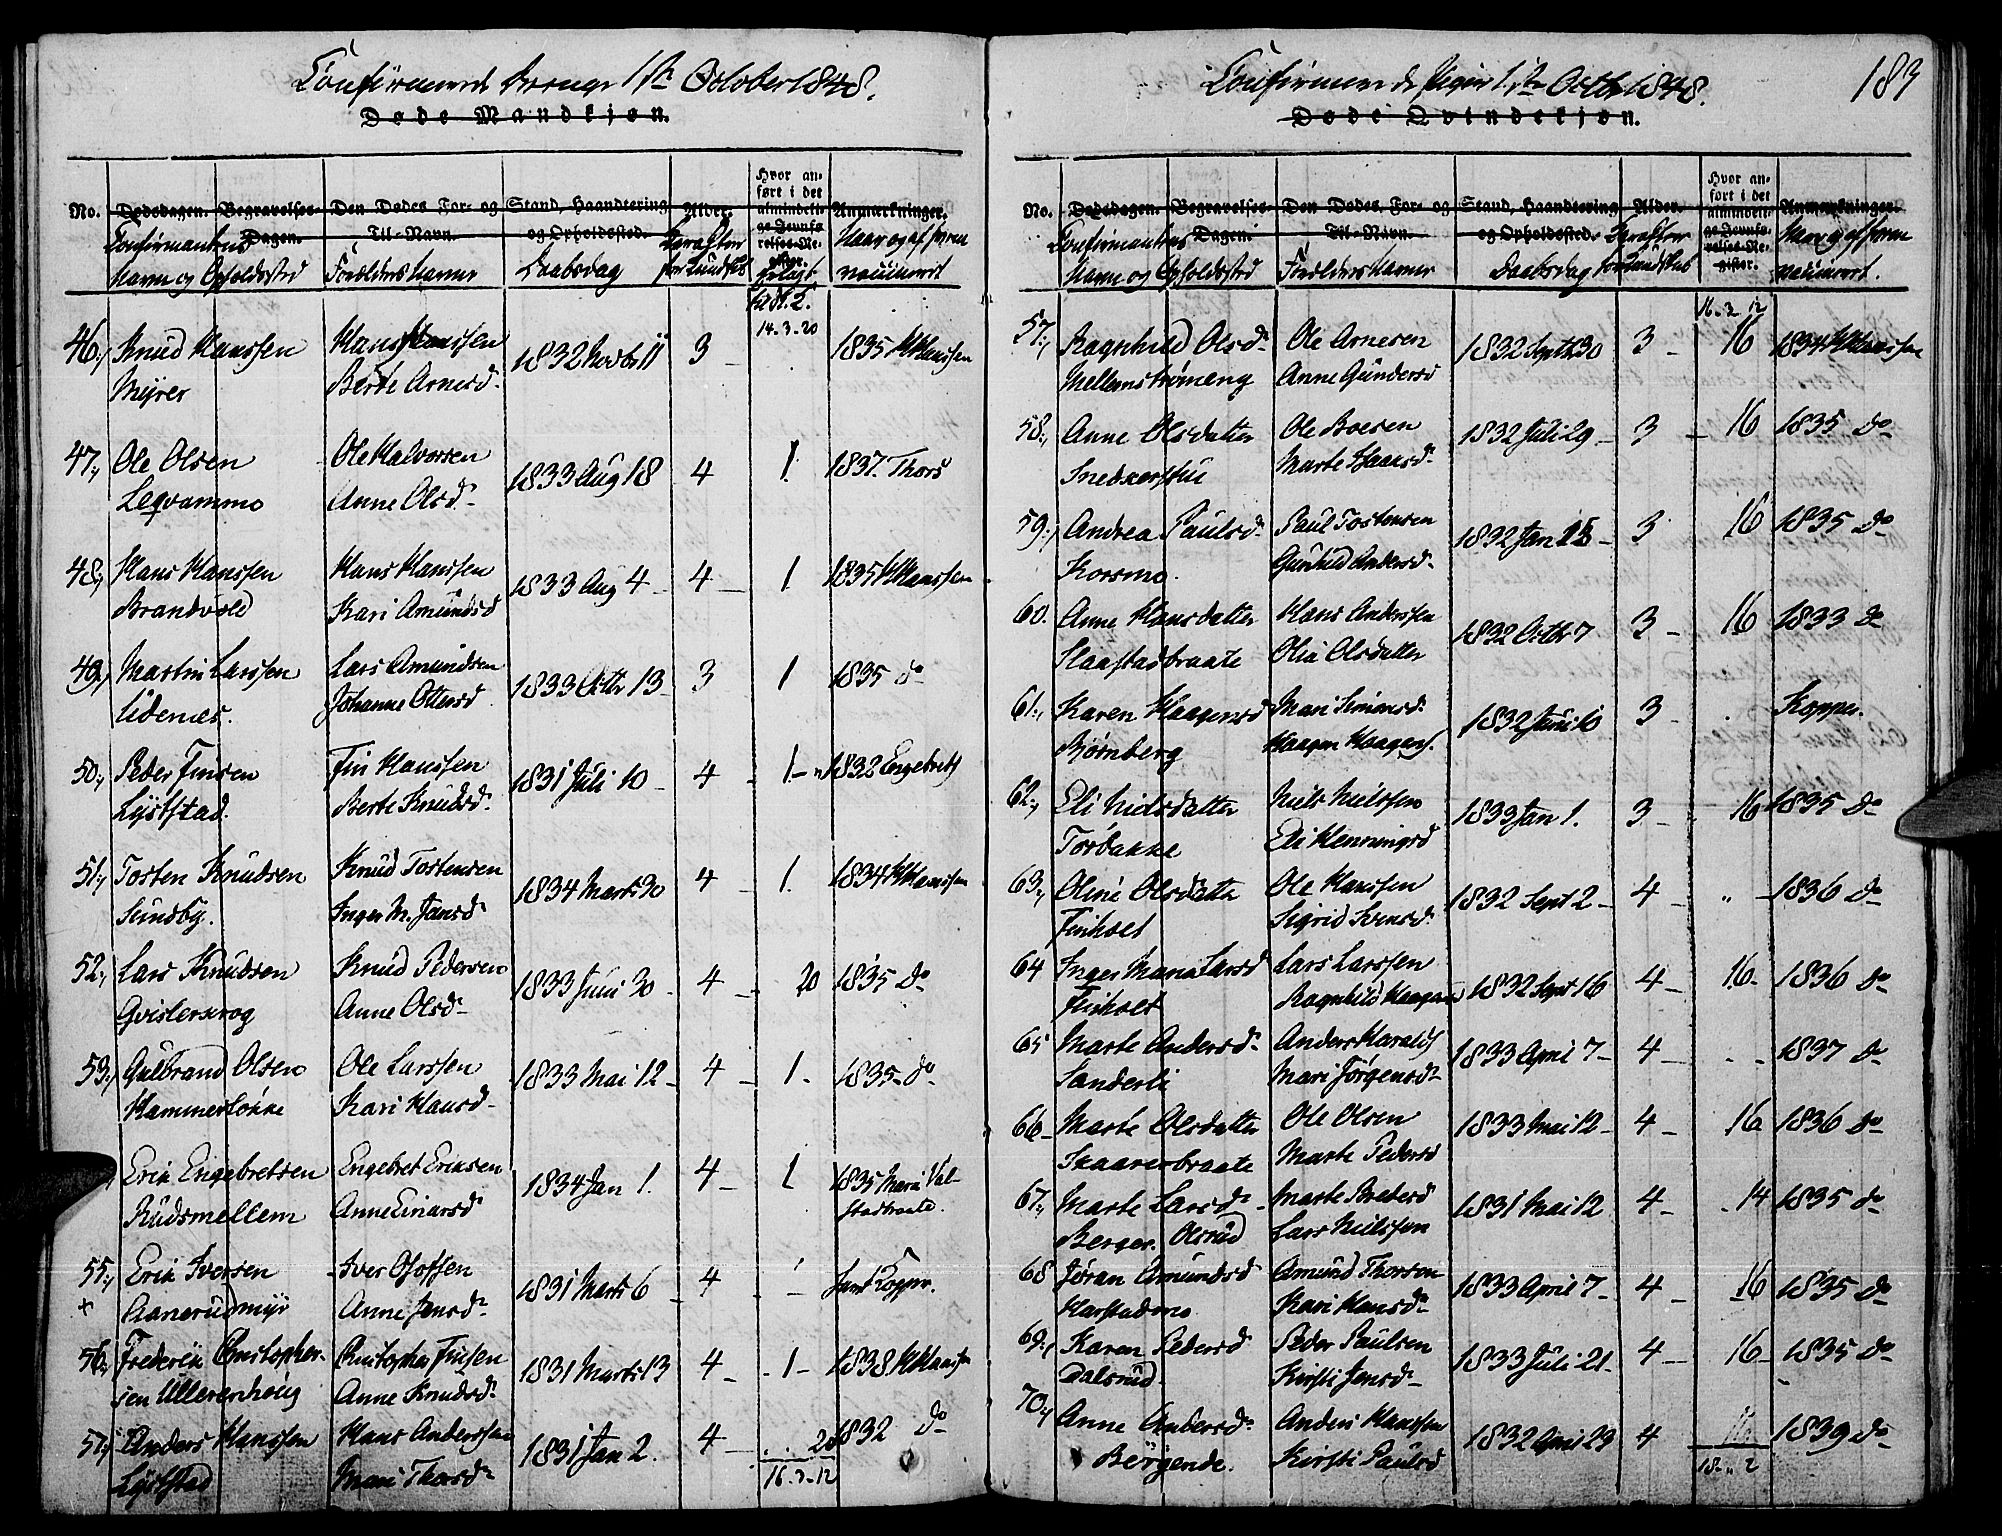 Confirmerede Drenge 1ste October 1848.
Døde Mandkjøn.
No. Dødsdagen. Begravelses-Dagen. Den Dødes For- og Til-Navn. Stand, Haandtering og Opholdssted. Alder. Hvor anført i det almindelige Jevnførelses-Register. Anmærkninger.
Confirmantens Navn og Opholdssted
Forældres Navne
Daabsdag
Karakter for Kundskb
Naar og af hvem vaccineret
14-3-20
46., Knud Hanssen Hans Hanssen 1832 Novbr 11 3 1835 H Hanssen
Myrer Berte Arnesd.
47., Ole Olsen Ole Halvorsen 1833 Aug 18 4 1. 1837. Thors
Leqvammo Anne Olsd.
48., Hans Hanssen Hans Hanssen 1833 Aug 4 4 1 1835 H Hanssen
Brandvold Kari Amundsd
49., Martin Larssen Lars Amundsen 1833 Octbr 13 3 1 1835 do
Udenæs. Johanne Ottersd
50., Peder Finsen Fin Hanssen 1831 Juli 10 4 1 1832 Engebrets
Lystad. Berte Knudsd.
51., Tosten Knudsen Knud Tostensen 1834 Marts 30 4 1. 1834 H Hanssen
Sundby. Inger M. Jansd.
52., Lars Knudsen Knud Pedersen 1833 Juni 30 4 20 1835 do
Qvislerkrog Anne Olsd.
53., Gulbrand Olsen Ole Larssen 1833 Mai 12 4 1. 1835 do
Hammerløkke Kari Hansd.
Erik Engebretsen Engebret Eriksen 1834 Jan 1. 4 1 1835 Mari Val-
Rudsmellem Anne Einarsd stadbraate.
55., Erik Iversen Iver Olofsen 1831 Marts 6 4 Kopper.
+ Aanerudmyr Anne Jensd.
56., Frederik Christopher- Christopher Finsen 1831 Marts 13 4 1 1838 H Hanssen
sen Ullerenhoug Anne Knudsd.
57., Anders Hanssen Hans Anderssen 1831 Jan 2. 4 20 1832 do
Lystad Mari Thorsd.
16-3-12
Confirmerede Piger 1ste Octbr 1848.
183
Døde Qvindekjøn.
No. Dødsdagen. Begravelses-Dagen. Den Dødes For- og Til-Navn. Stand, Haandtering og Opholdssted. Alder. Hvor anført i det almindelige Jevnførelses-Register. Anmærkninger.
Confirmantens Navn og Opholdssted
Forældres Navne
Daabsdag
Karakter for Kundskab
Naar og af hvem vaccineret.
16-3-12
57., Ragnhild Olsd. Ole Arnesen 1832 Septbr 30 3 16 1834 H Hanssen
Mellemstrømeng Anne Gundersd
58., Anne Olsdatter Ole Boesen 1832 Juli 29 3 16 1835 do
Snedkerstue Marte Hansd.
59., Andrea Paulsd. Paul Tostensen 1832 Jan 15 3 16 1835 do
Korsmo. Gunhild Andersd.
60. Anne Hansdatter Hans Anderssen 1832 Octbr 7 3 16 1833 do
Slaastadbraate Olia Olsdatter
61., Karen Haagensd Mari Simensd. 1832 Juni 10 3 Kopper.
Bjørnberg Haagen Haagens.
62., Eli Nielsdatter Niels Nielssen 1833 Jan 1. 3 16 1835 do
Tordakke Eli Henningsd
63., Oline Olsdatter Ole Hanssen 1832 Sept 2 4 1836 do
Finholt Sigrid Svensd.
64 Inger Maria Larsd Lars Larssen 1832 Sept 16 4 16 1836 do
Finholt Ragnhild Haagens
65 Marte Andersd. Anders Haralds 1833 April 7 4 1837 do
Sanderli Mari Jørgensd.
66 Marte Olsdatter Ole Olsen 1833 Mai 12 4 16 1836 do
Skaarerbraate Marte Pedersd
67., Marte Larsd. Marte Bredesd 1831 Mai 12 4 14 1835 do
Berger. Olsrud Lars Nielssen
68 Jøran Amundsd Amund Thorsen 1833 April 7 4 16 1835 do
Harstadmo Kari Hansd.
69., Karen Pedersd Peder Paulsen 1833 Juli 21 4 16 1835 do
Dalsrud. Kirsti Jensd.
70., Anne Andersd. Anders Hanssen 1832 April 29 4 16 1839 do
Børgende. Kirsti Paulsd
18 " 2